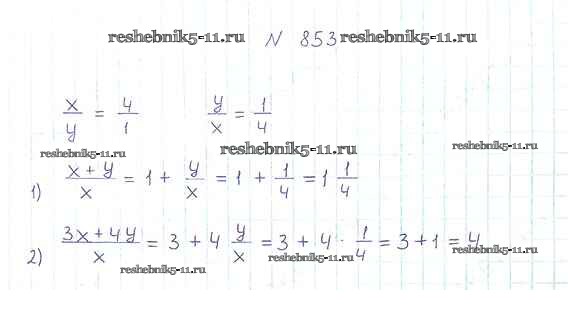 reshebnik5-11.ru N 853 reshebnik5-11.ru
x/y = 4/1 y/x = 1/4
reshebnik5-11.ru reshebnik5-11.ru reshebnik5-11.ru
1) (x + y)/x = 1 + y/x = 1 + 1/4 = 1 1/4
2) (3x + 4y)/x = 3 + 4 y/x = 3 + 4 · 1/4 = 3 + 1 = 4
reshebnik5-11.ru reshebnik5-11.ru reshebnik5-11.ru